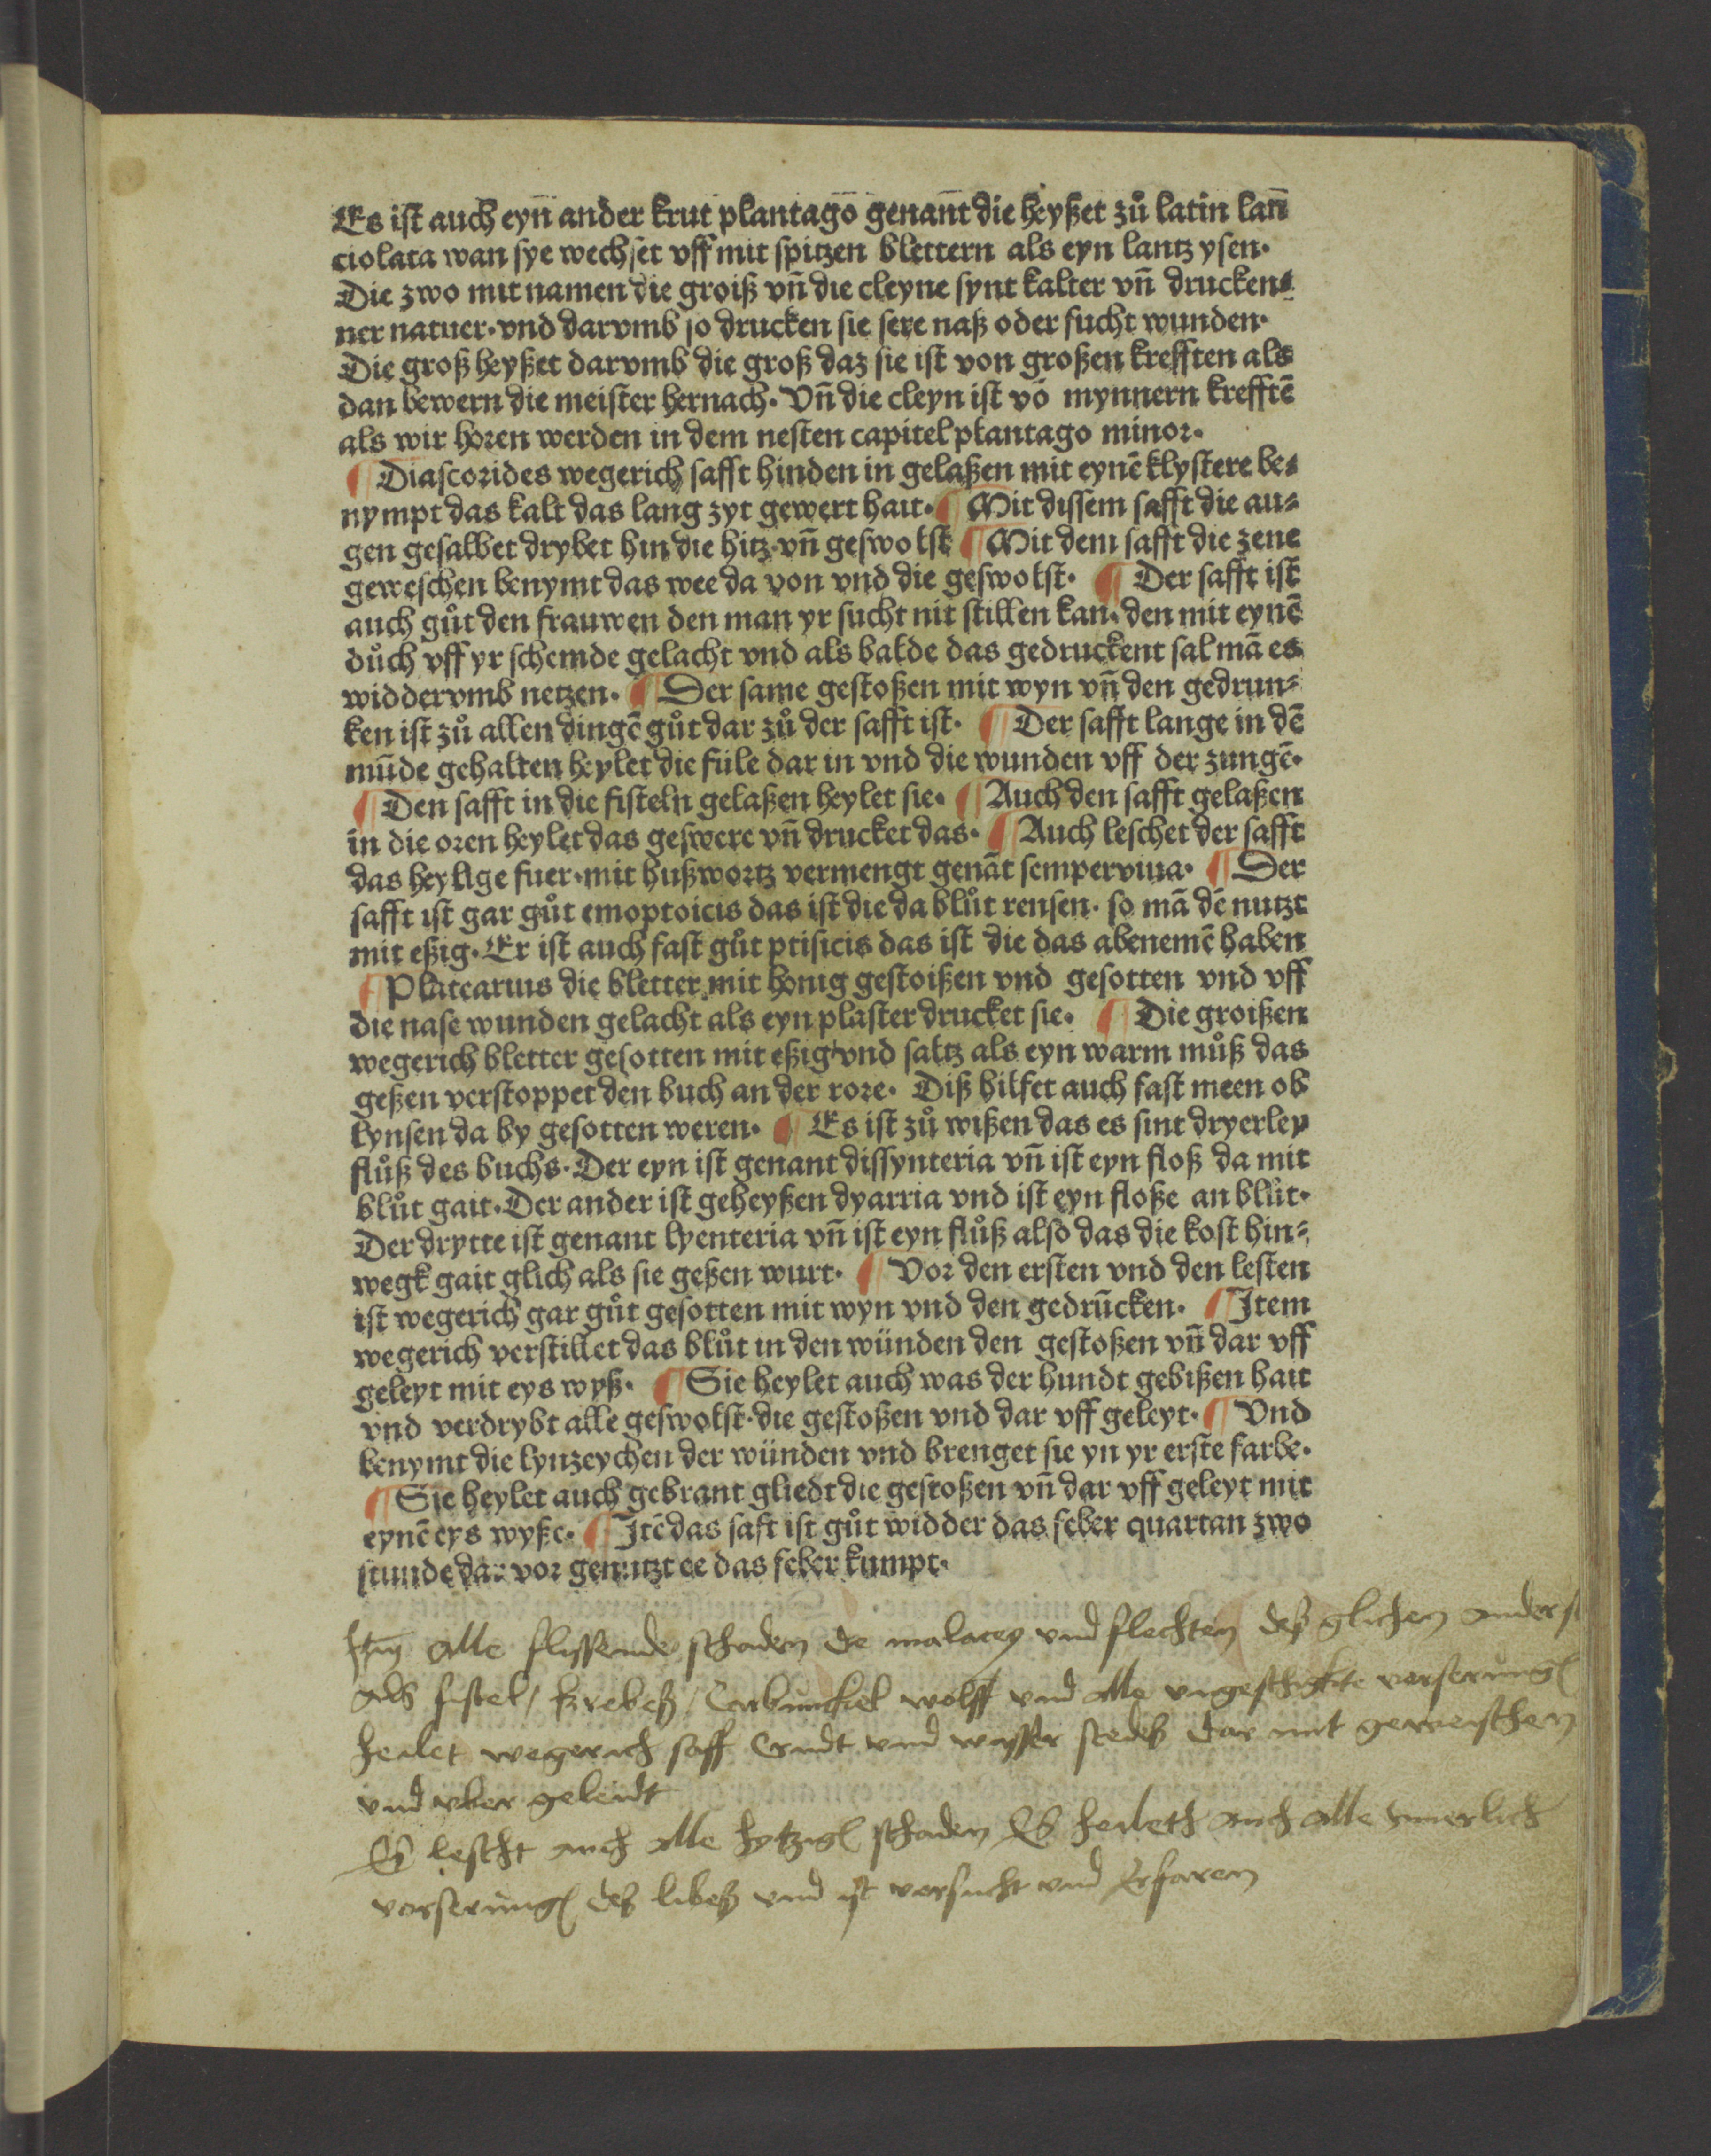 Es ist auch eyn̄ ander krut plantagō genan̄t die heyßet zů latin lan̄
ciolata wan sye wechset vff mit spitzen blettern als eyn lantz ysen·
Die zwo mit namen die groiß vn̄ die cleyne synt kalter vn̄ drucken⸗
ner natuer· vnd darvmb so drucken sie sere naß oder fucht wunden·
Die groß heyßet darvmb die groß daz sie ist von großen krefften als
dan bewern die meister hernach· Vn̄ die cleyn ist vō mynnern krefftē
als wir horen werden in dem nesten capitel plantago minor·
¶ Diascorides wegerich safft hinden in gelaßen mit eynē klystere be⸗
nympt das kalt das lang zyt gewert hait· ¶ Mit dissem safft die au⸗
gen gesalbet drybet hin die hitz vn̄ geswolst ¶ Mit dem safft die zene
geweschen benymt das wee da von vnd die geswolst· ¶ Der safft ist
auch gůt den frauwen den man yr sucht nit stillen kan· den mit eynē
důch vff yr schemde gelacht vnd als balde das gedruckent sal mā es
widdervmb netzen· ¶ Der same gestoßen mit wyn vn̄ den gedrun⸗
ken ist zů allen dingē gůt dar zů der safft ist· ¶ Der safft lange in dē
mūde gehalten heylet die fule dar in vnd die wunden vff der zungē·
¶ Den safft in die fisteln gelaßen heylet sie· ¶ Auch den safft gelaßen
in die oren heylet das geswere vn̄ drucket das· ¶ Auch leschet der safft
das heylige fuer· mit hußwortz vermengt genāt semperviua· ¶ Der
safft ist gar gůt emoptoicis das ist die da blůt rensen· so mā dē nutzt
mit eßig· Er ist auch fast gůt ptisicis das ist die das abenemē haben
¶ Platearius die bletter mit honig gestoißen vnd gesotten vnd vff
die nase wunden gelacht als eyn plaster drucket sie· ¶ Die groißen
wegerich bletter gesotten mit eßig vnd saltz als eyn warm můß das
geßen verstoppet den buch an der rore· Diß hilfet auch fast meen ob
lynsen da by gesotten weren· ¶ Es ist zů wißen das es sint dryerley
flůß des buchs· Der eyn ist genant dissynteria vn̄ ist eyn floß da mit
blůt gait· Der ander ist geheyßen dyarria vnd ist eyn floße an blůt·
Der drytte ist genant lyenteria vn̄ ist eyn flůß also das die kost hin⸗
wegk gait glich als sie geßen wurt· ¶ Vor den ersten vnd den lesten
ist wegerich gar gůt gesotten mit wyn vnd den gedrūcken· ¶ Item
wegerich verstillet das blůt in den wünden den gestoßen vn̄ dar vff
geleyt mit eys wyß· ¶ Sie heylet auch was der hundt gebißen hait
vnd verdrybt alle geswolst· die gestoßen vnd dar vff geleyt· ¶ Vnd
benymt die lynzeychen der wünden vnd brenget sie yn yr erste farbe·
¶ Sie heylet auch gebrant gliedt die gestoßen vn̄ dar vff geleyt mit
eynē eys wyße· ¶ Itē das saft ist gůt widder das feber quartan zwo
stunde dar vor genutzt ee das feber kumpt·
Itm alle flyssende schaden de malacey vnd flechten deß glichen anders
als fistel / krebeß / Carbunckel wolff vnd alle vngeschickte verserung
heilet wegerich saff Crudt vnd wasser stedeß dar mit geweischen
vnd vber geleidt
Eß lescht auch alle hytzige schaden Eß heileth auch alle Innerlich
verserung deß libeß vnd ist versucht vnd Erfaren